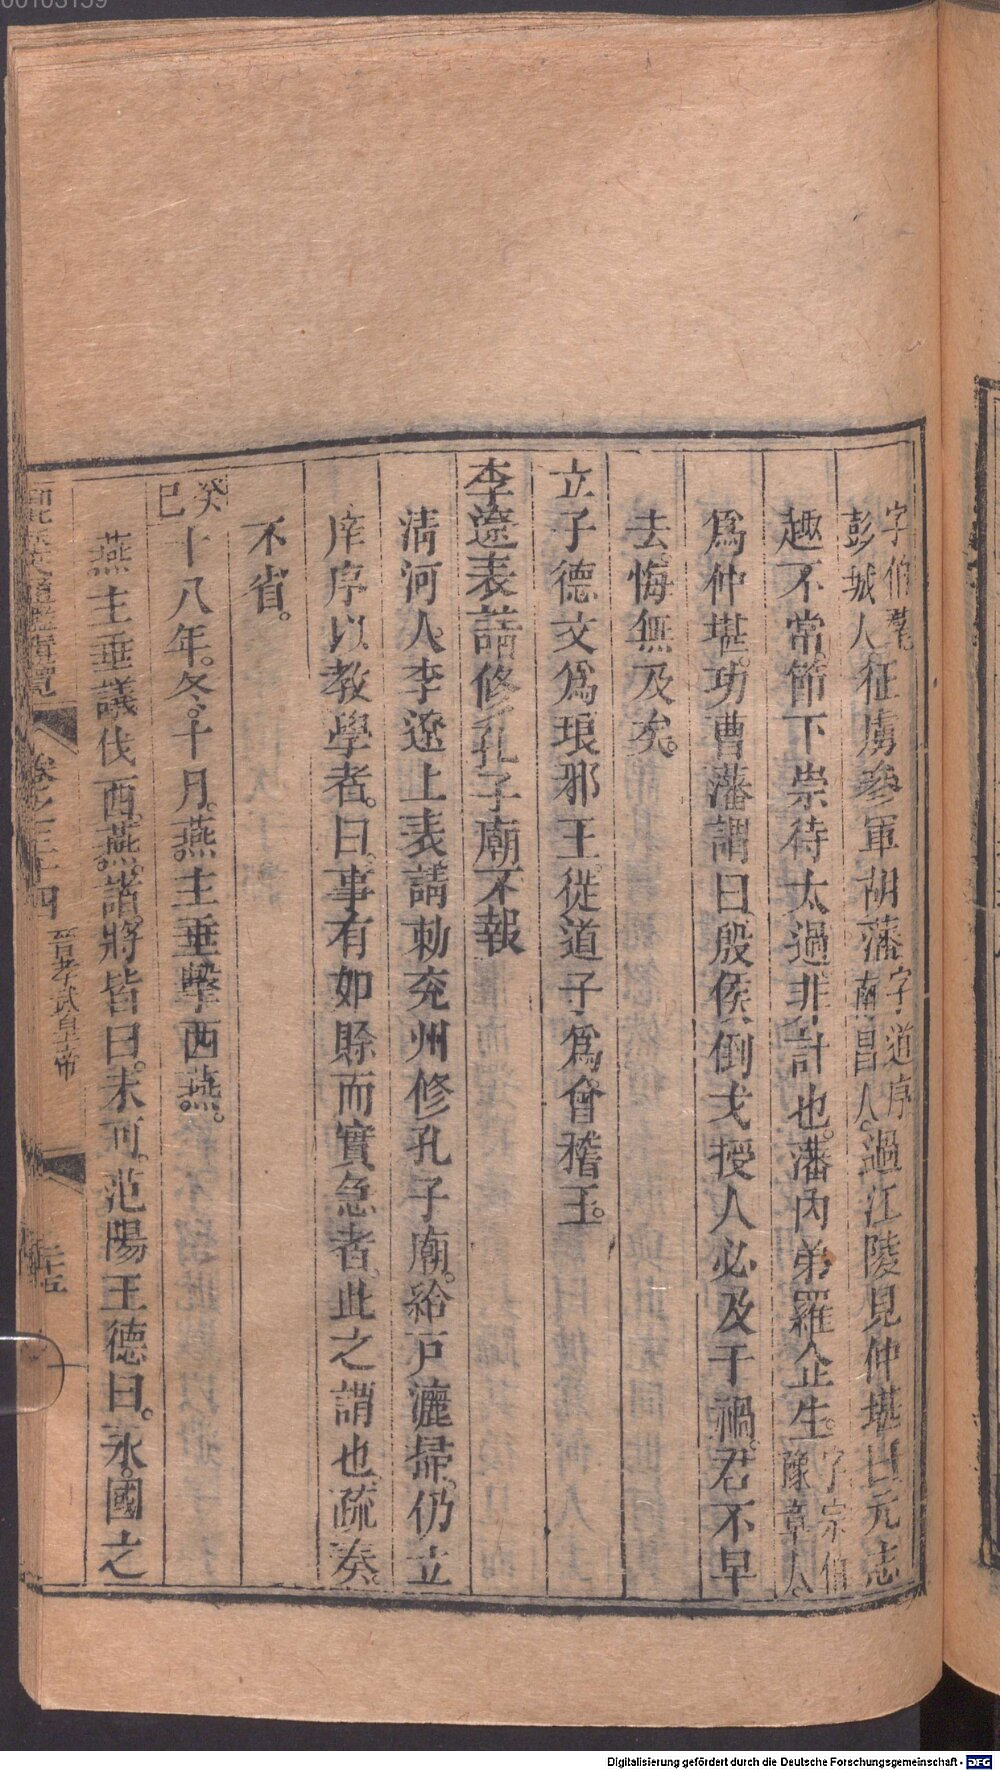 字伯羣彭城人征虜參軍胡藩字道序南昌人過江陵見仲堪曰元志
趣不常節下崇待太過非計也藩內弟羅企生字宗伯豫章人
爲仲堪功曹藩謂曰殷侯倒戈授人必及于禍君不早
去悔無及矣
立子德文爲琅邪王徙道子爲會稽王
李遼表請修孔子廟不報
清河人李遼上表請勅兗州修孔子廟給戸灑掃仍立
庠序以教學者曰事有如賒而實急者此之謂也疏奏
不省
癸巳十八年冬十月燕主垂擊西燕
燕主垂議伐西燕諸將皆曰未可范陽王德曰永國之
卷之三十四 晉孝武皇帝 三十五
00103159
Digitalisierung gefördert durch die Deutsche Forschungsgemeinschaft - DFG